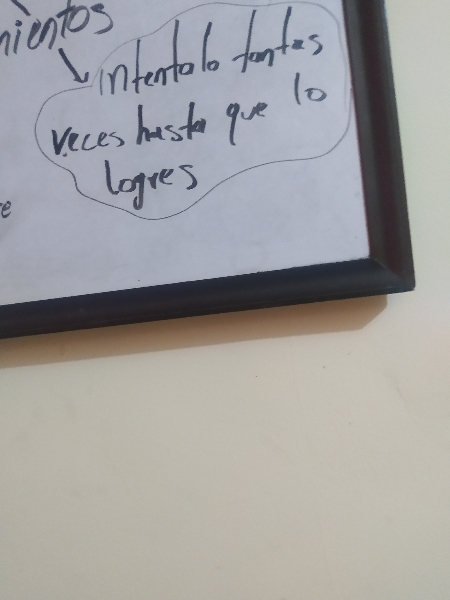 mientos
intentalo tantas
veces hasta que lo
logres
e